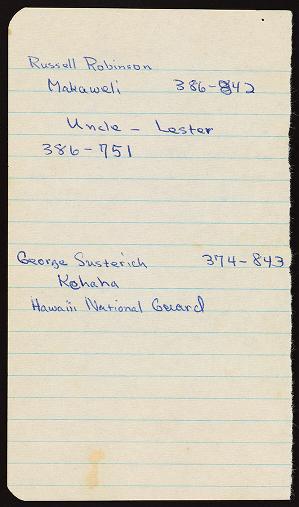 Russell Robinson
Makaweli 386-842
Uncle - Lester
386-751
George Susterich 374-843
Kohana
Hawaii National Guard